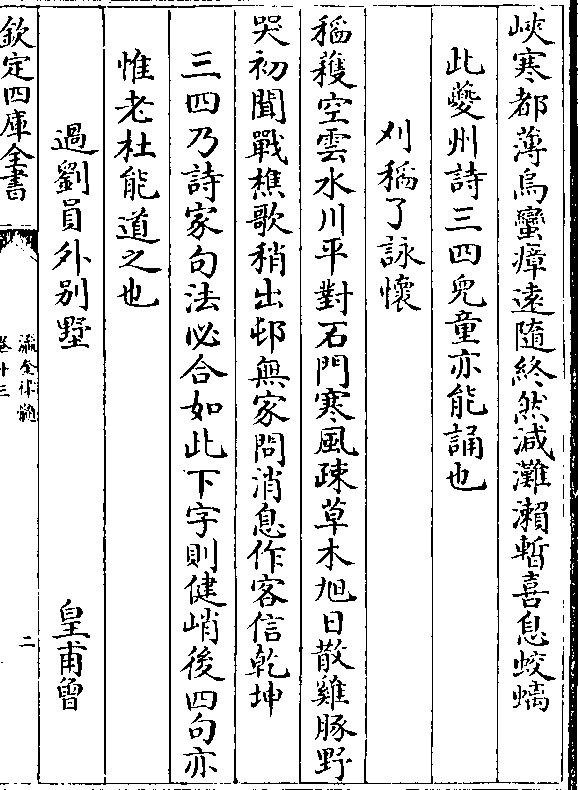 峽寒都薄烏蠻瘴遠隨終然減灘瀨暫喜息蛟螭
此夔州詩三四兒童亦能誦也
刈稻了詠懷
稻穫空雲水川平對石門寒風疎草木旭日散雞豚野
哭初聞戰樵歌稍出邨無家問消息作客信乾坤
三四乃詩家句法必合如此下字則健峭後四句亦
惟老杜能道之也
過劉員外别墅　皇甫曾
欽定四庫全書
瀛奎律髓
卷十三
二